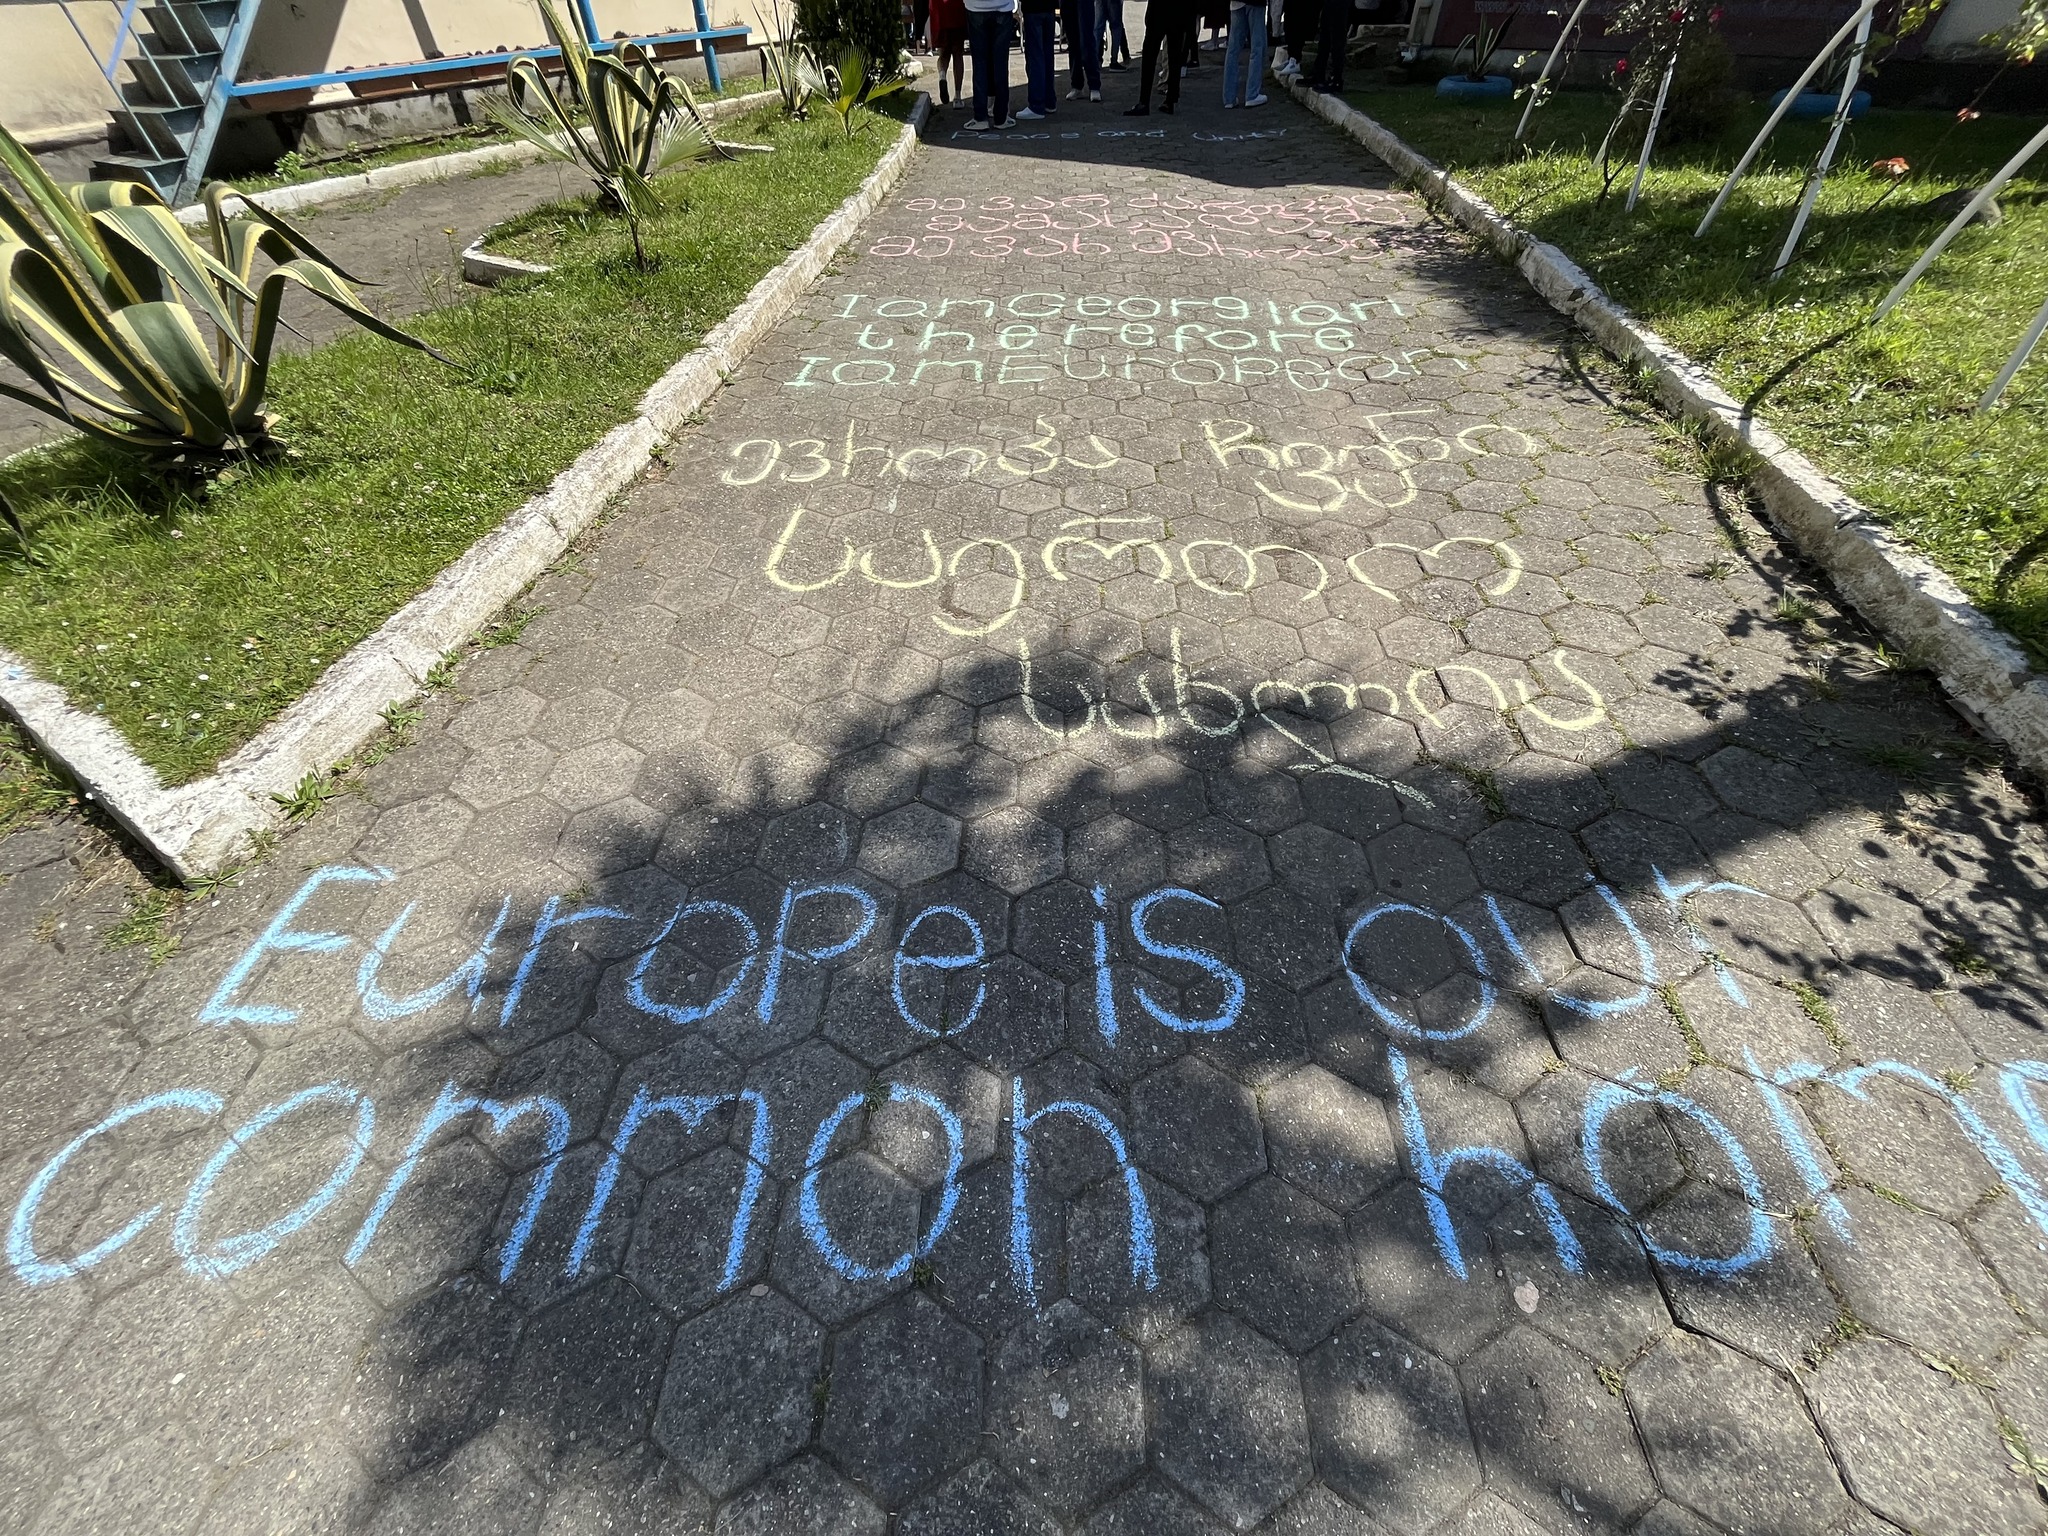 Peace and Unity
მე ვარ ქართველი
მაშასადამე
მე ვარ ევროპელი
I am Georgian
therefore
I am European
ევროპა ჩვენი
საერთო
სახლია
Europe is our
common home